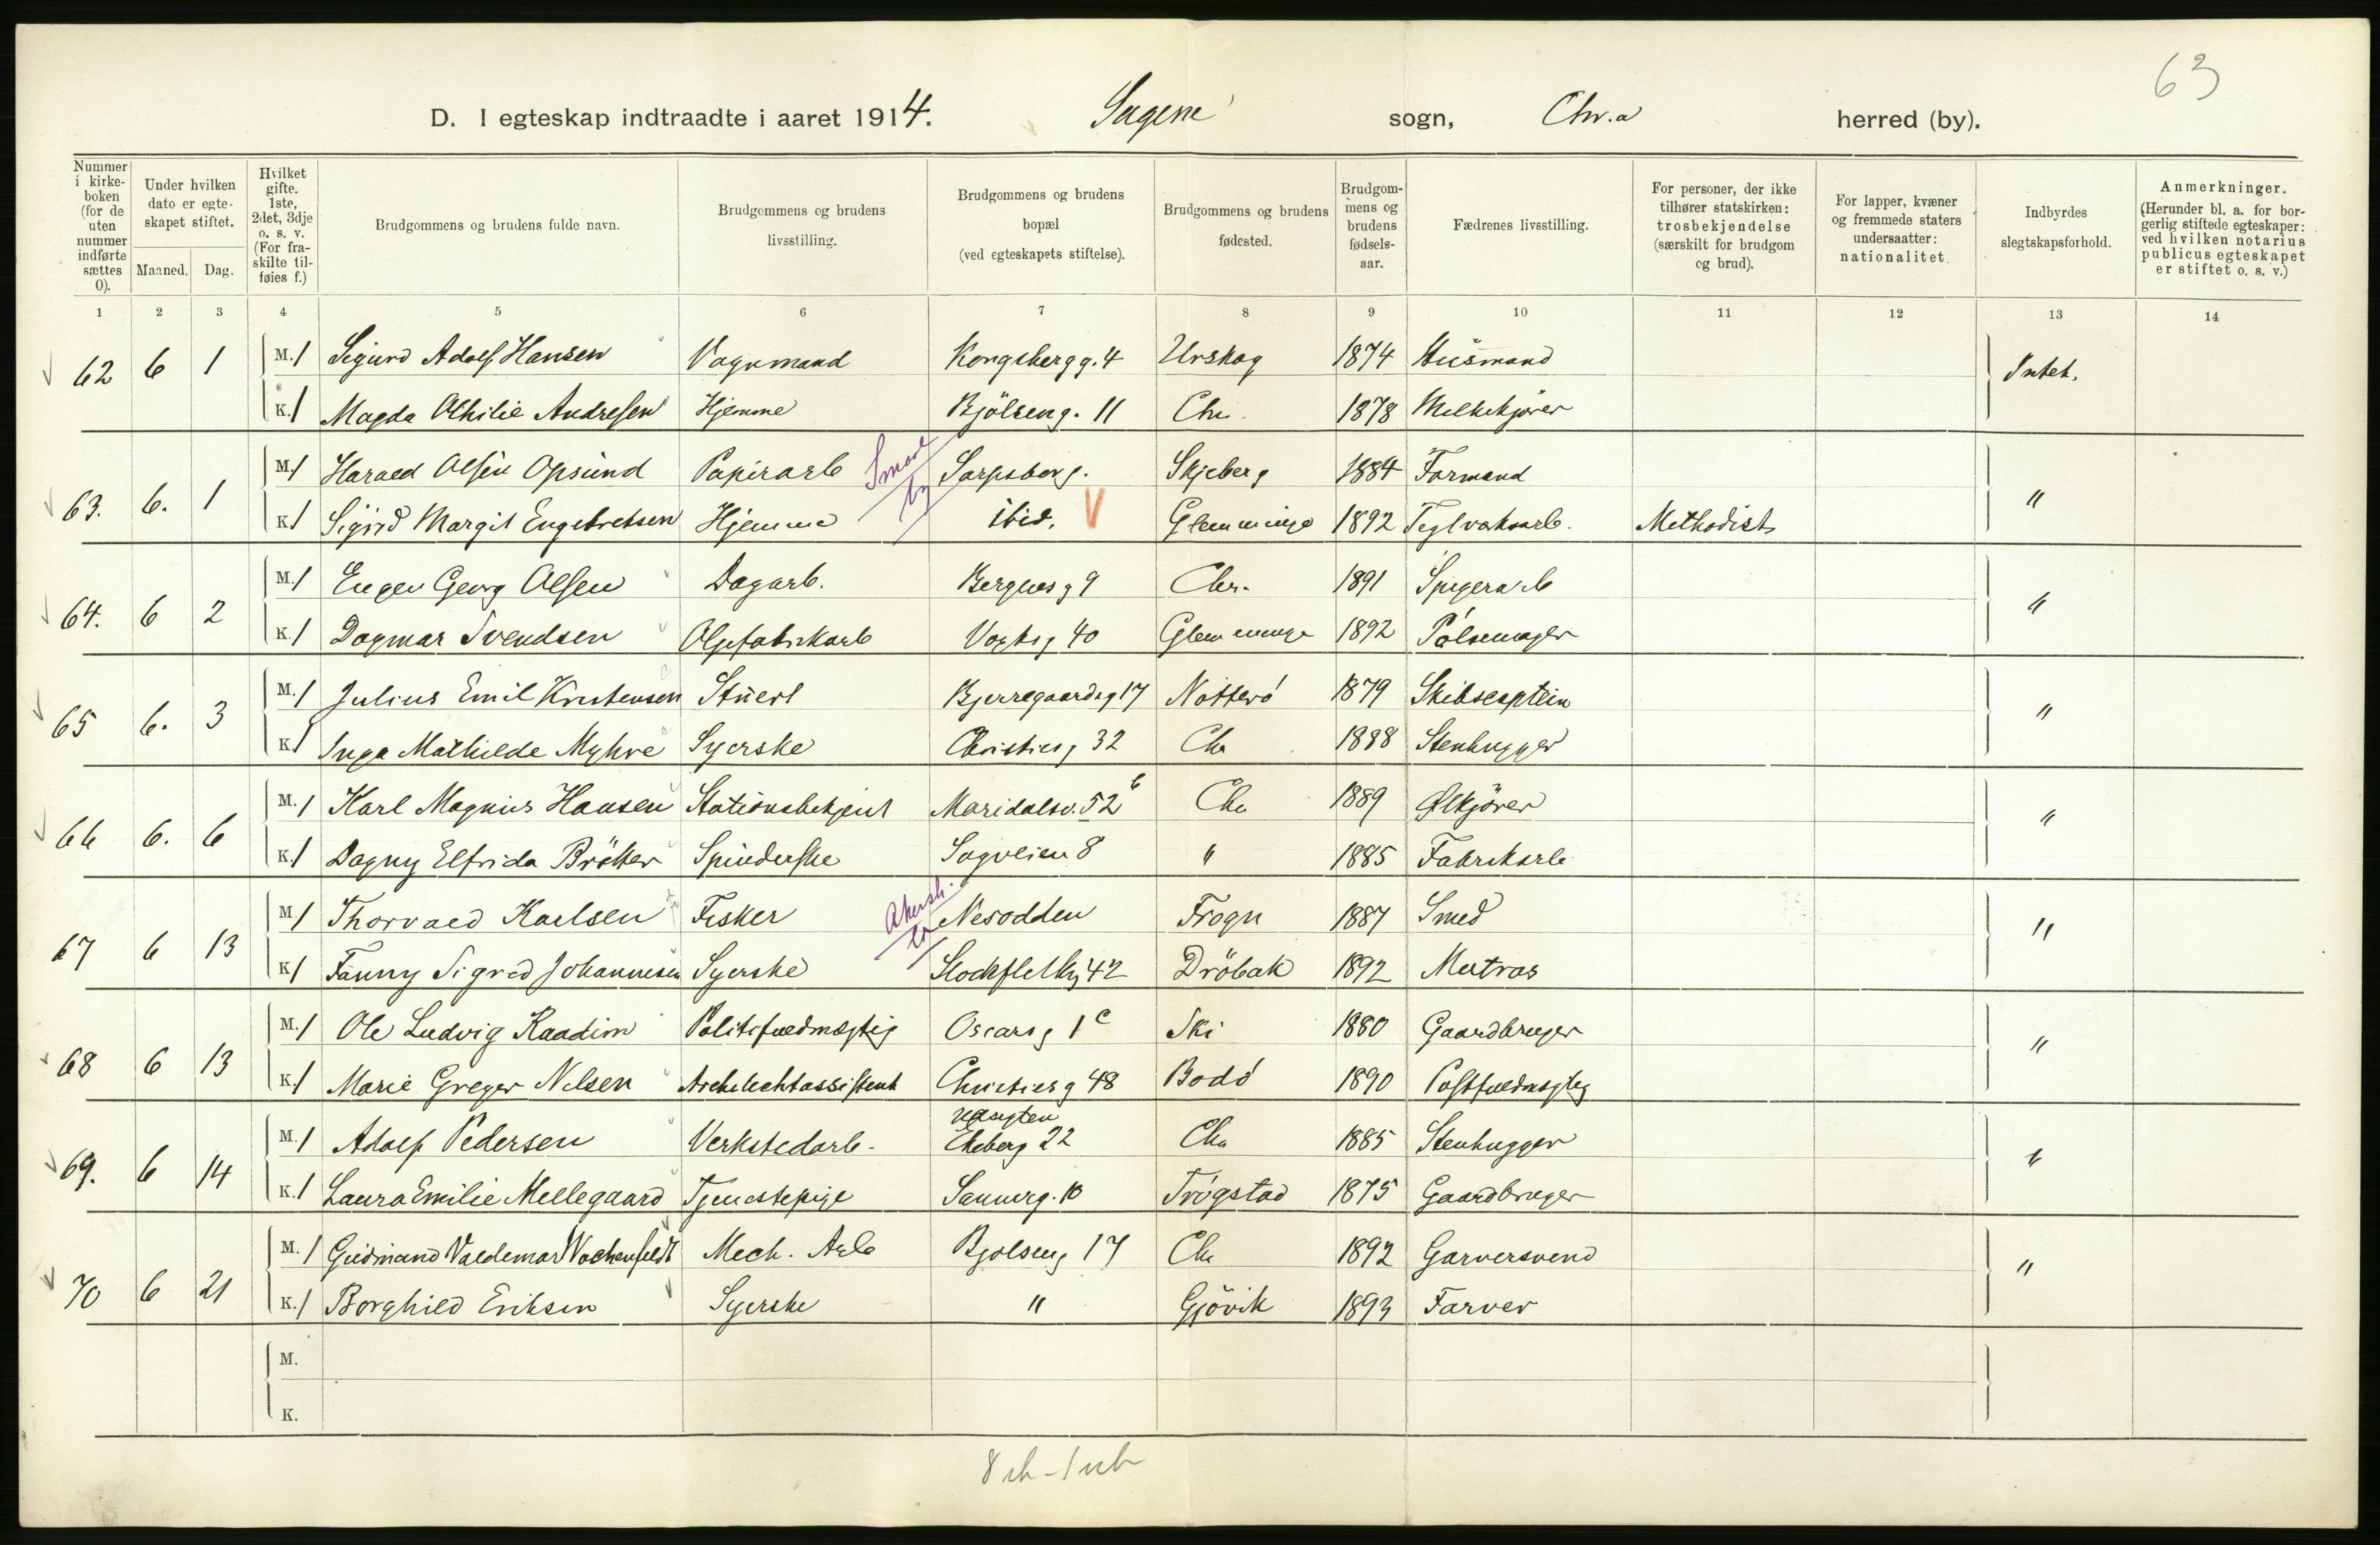 63
D. I egteskap indtraadte i aaret 1914. Sagene sogn, Chr.a herred (by).
Nummer i kirke-boken (for de uten nummer indførte sættes 0).
Under hvilken dato er egte-skapet stiftet.
Maaned. Dag.
Hvilket gifte. 1ste, 2det, 3dje o. s. v. (For fra-skilte til-føies f.)
Brudgommens og brudens fulde navn.
Brudgommens og brudens livsstilling.
Brudgommens og brudens bopæl (ved egteskapets stiftelse).
Brudgommens og brudens fødested.
Brudgom-mens og brudens fødsels-aar.
Fædrenes livsstilling.
For personer, der ikke tilhører statskirken: trosbekjendelse (særskilt for brudgom og brud).
For lapper, kvæner og fremmede staters undersaatter: nationalitet.
Indbyrdes slegtskapsforhold.
Anmerkninger. (Herunder bl. a. for bor-gerlig stiftede egteskaper: ved hvilken notarius publicus egteskapet er stiftet o. s. v.)
1 2 3 4 5 6 7 8 9 10 11 12 13 14
62 6 1 M. 1 Sigurd Adolf Hansen Vognmand Kongsbergg. 4 Urskog 1874 Husmand Intet.
K. 1 Magda Othilie Andresen Hjemme Bjölseng. 11 Chr. 1878 Melkekjører
63. 6. 1 M. 1 Harald Olsen Opsund Papirarb Sarpsborg. Skjeberg 1884 Formand "
K. 1 Sigrid Margit Engebretsen Hjemme ibid. V Glemminge 1892 Teglverksarb. Methodist
64. 6 2 M. 1 Eugen Georg Olsen Dagarb. Bergnesg 9 Chr. 1891 Spigerarb "
K. 1 Dagmar Svendsen Oljefabrikarb Vogtsg 40 Glemminge 1892 Pölsemager
65 6. 3 M. 1 Julius Emil Kristensen Stuert Bjerregaardsg 17 Nötterö 1879 Skibscaptein "
K. 1 Inga Mathilde Myhre Syerske Christiesg 32 Chr 1888 Stenhugger
66 6. 6 M. 1 Karl Magnus Hansen Stationsbetjent Maridalsv. 52 b Chr 1889 Ølkjörer "
K. 1 Dagny Elfrida Bråther Spinderske Sagveien 8 " 1885 Fabrikarb
67 6 13 M. 1 Thorvald Karlsen Fisker Akersh. Nesodden Frogn 1887 Smed "
K. 1 Fanny Sigrid Johannesen Syerske Stockflethg 42 Dröbak 1892 Matros
68 6 13 M. 1 Ole Ludvig Kaadim Politifuldmægtig Oscarsg 1 c Ski 1880 Gaardbruger "
K. 1 Marie Greger Nilsen Arkitektassistent Christiesg 48 Bodö 1890 Postfuldmægtig
69. 6 14 M. 1 Adolf Pedersen Verkstedarb. Utsigten Ekeberg 22 Chr 1885 Stenhugger "
K. 1 Laura Emilie Mellegaard Tjenestepige Sannerg. 10 Trögstad 1875 Gaardbruger
70 6 21 M. 1 Gudmand Valdemar Wachenfeldt Mech. Arb Bjolseng 17 Chr 1892 Garversvend "
K. 1 Borghild Eriksen Syerske " Gjövik 1893 Farver
M.
K.